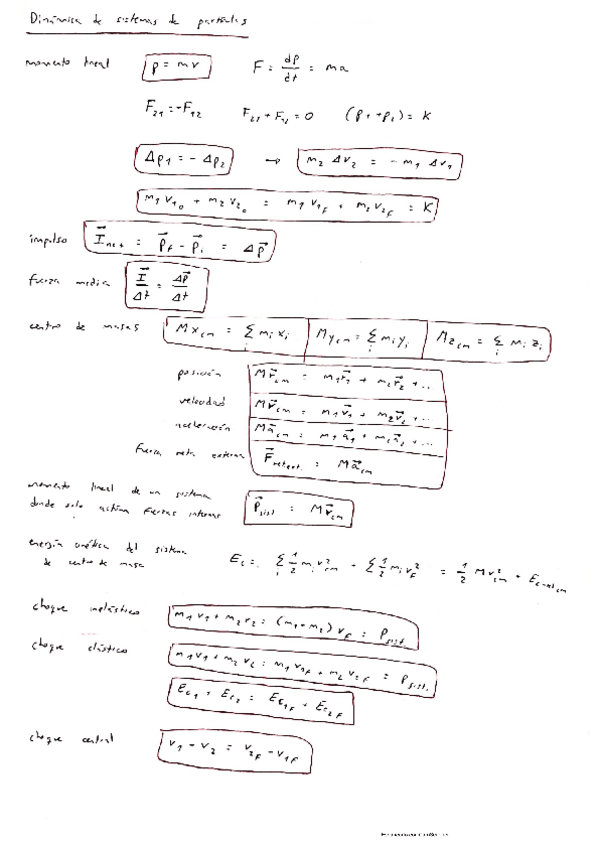 Dinámica de sistemas de partículas
momento lineal p = mv F = dp/dt = ma
F₂₁ = -F₁₂ F₂₁ + F₁₂ = 0 (p₁ + p₂) = K
Δp₁ = - Δp₂ → m₂ Δv₂ = - m₁ Δv₁
m₁ v₁₀ + m₂ v₂₀ = m₁ v₁F + m₂ v₂F = K
impulso I⃗ = p⃗f - p⃗i = Δp⃗
fuerza media I⃗/Δt = Δp⃗/Δt
centro de masas Mx_cm = Σᵢ mᵢ xᵢ My_cm = Σᵢ mᵢ yᵢ Mz_cm = Σᵢ mᵢ zᵢ
posición Mr⃗_cm = m₁r⃗₁ + m₂r⃗₂ + ...
velocidad Mv⃗_cm = m₁v⃗₁ + m₂v⃗₂ + ...
aceleración Ma⃗_cm = m₁a⃗₁ + m₂a⃗₂ + ...
fuerza neta externa F⃗ = Ma⃗_cm
momento lineal de un sistema
donde solo actúan fuerzas internas P⃗sist = Mv⃗_cm
energía cinética del sistema
de centro de masa Ec = Σᵢ ½ mᵢ v²_cm + Σ ½ mᵢ v² = ½ Mv²_cm +
choque inelástico m₁v₁ + m₂v₂ = (m₁+m₂) v_F = Psist.
choque elástico m₁v₁ + m₂v₂ = m₁v₁F + m₂v₂F = Psist.
Ec₁ + Ec₂ = Ec₁F + Ec₂F
choque central v₁ - v₂ = v₂F - v₁F